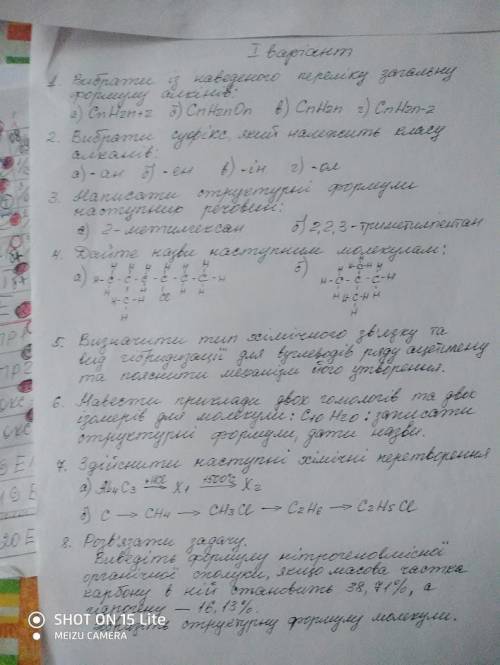 I варіант
1. Вибрати із наведеного переліку загальну
формулу алкінів:
а) CnH2n+2 б) CnH2nOn в) CnH2n г) CnH2n-2
2. Вибрати суфікс, який належить класу
алканів:
а) -ан б) -ен в) -ін г) -ол
3. Написати структурні формули
наступних речовин:
а) 2-метилгексан б) 2,2,3-триметилпентан
4. Дайте назви наступним молекулам:
а) б)
H H H H H H H
H-C-C-C-C-C-C-H H-C-C-C-H
H-C-H Cl
H
5. Визначити тип хімічного зв'язку та
вид гібридизації для вуглеводів ряду ацетилену
та пояснити механізм його утворення.
6. Навести приклади двох гомологів та двох
ізомерів для молекули: C10H20: записати
структурні формули, дати назви.
7. Здійснити наступні хімічні перетворення
а) Al4C3 +HCl→ X1 +1500°C→ X2
б) C → CH4 → CH3Cl → C2H6 → C2H5Cl
8. Розв'язати задачу.
Виведіть формулу нітрогеновмісної
органічної сполуки, якщо масова частка
карбону в ній становить 38,71%, а
гідрогену — 16,13%.
структурну формулу молекули.
SHOT ON 15 Lite
MEIZU CAMERA